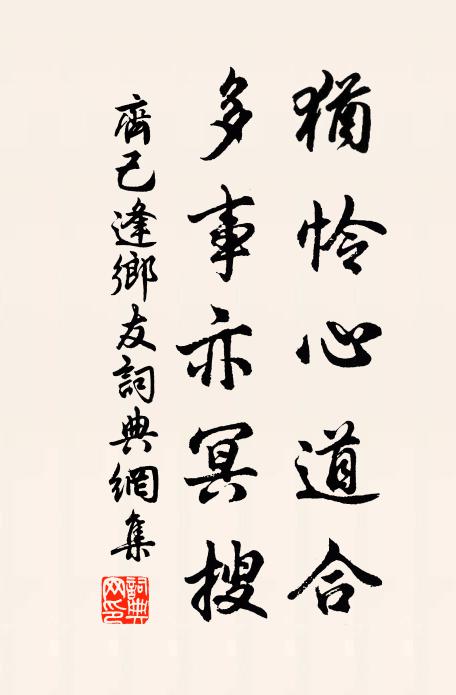 猶怜心道合
多事亦冥搜
齊己逢鄉友詞典網集
詞典網印